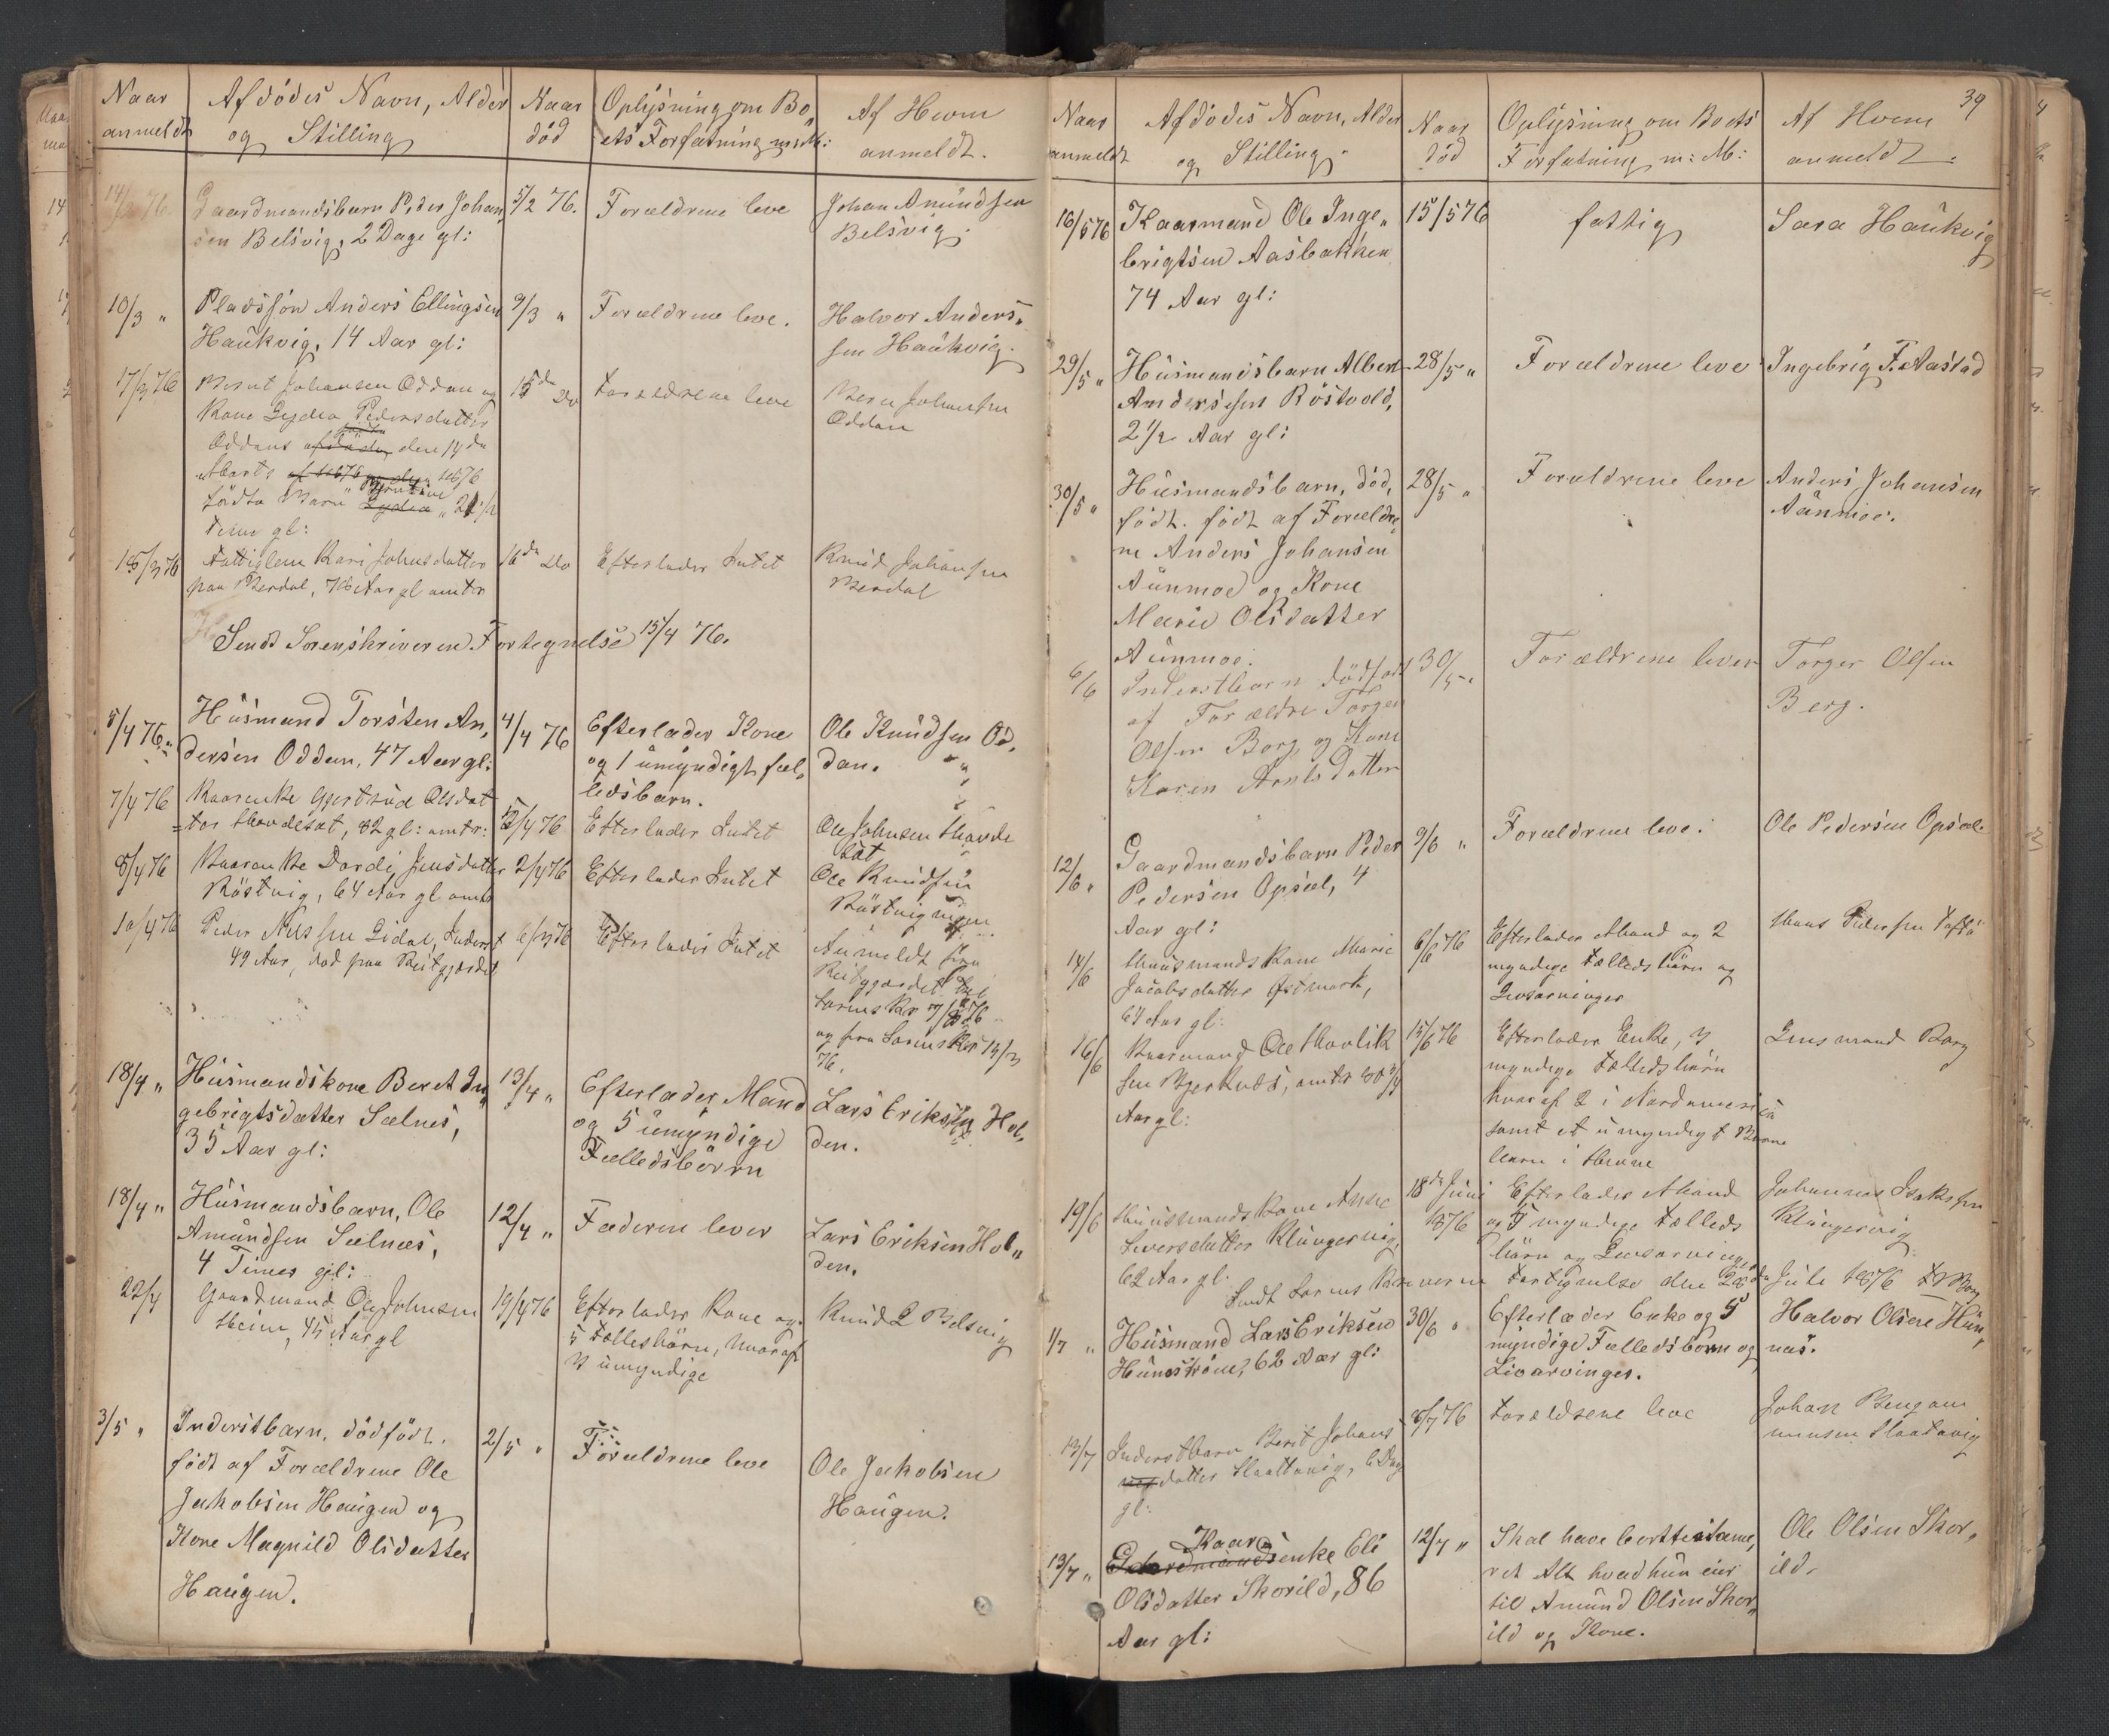 Naar anmeldt
Afdödes Navn, Alder og Stilling
Naar död
Oplysning om Bo„ ets Forfatning m: M:
Af Hvem anmeldt.
14/2 76.
Gaardmandsbarn Peder Johan„
sen Belsvig, 2 Dage gl:
5/2 76.
Forældrene leve
Johan Amündsen
Belsvig.
10/3 "
Pladssøn Anders Ellingsen
Haükvig, 14 Aar gl:
9/3 "
Forældrene leve.
Halvor Anders„
sen Haükvig.
17/3 76
Johansen Oddan og
Kone Lydia Pedersdatter
Oddans den 14 da
1876
födte Barn
Timer gl:
15 de Do
Forældrene leve
Johansen
Oddan
18/3 76
Fattiglem Kari Johnsdatter
paa Berdal, 76 Aar gl omtr
16 de Do
Efterlader Intet
Knüd Johansen
Berdal
Sendt Sorenskriveren Fortegnelse 15/4 76.
5/4 76.
Hüsmand Torsten An„
dersen Oddan, 47 Aar gl:
4/4 76
Efterlader Kone
og 1 ümyndigt fæl„
ledsbarn.
Ole Knüdsen Od„
dan.
7/4 76
Kaarenke Gjertrüd Olsdat
=ter Hovdesæt, 82 gl: omtr:
5/4 76
Efterlader Intet
Ole Johnsen Hovde
sæt
8/4 76
Kaarenke Dordi Jensdatter
Röstvig, 64 Aar gl omtr
2/4 76
Efterlader Intet
Ole Knüdsen
Röstvig
10/4 76
Peder Nilssen Lidal, Inderst
49 Aar, död paa Reitgjærdet
6/3 76
Efterlader Intet
Anmeldt fra
Reitgjærdet til
Sorenskr
og fra Sorenskr 13/3
76.
18/4 "
Hüsmandskone Beret In„
gebrigtsdatter Sælnes,
35 Aar gl:
13/4 "
Efterlader Mand
og 5 ümyndige
Fælledsbörn
Lars Eriksen Hol„
den.
18/4 "
Hüsmandsbarn, Ole
Amündsen Sælnæs,
4 Times gl:
12/4 "
Faderen lever
Lars Eriksen Hol„
den.
22/4
Gaardmand Ole Johnsen
Heim, 45 Aar gl
19/4 76
Efterlader Kone og
5 Fællesbörn, hvoraf
ümyndige
Knüd L Belsvig
3/5 "
Inderstbarn, dödfödt.
födt af Forældrene Ole
Jakobsen Haügen og
Kone Magnild Olsdatter
Haügen.
2/5 "
Forældrene leve
Ole Jakobsen
Haügen.
39
Naar anmeldt
Afdödes Navn, Alder og Stilling.
Naar död
Oplysning om Boets Forfatning m: M:
Af Hvem anmeldt.
16/5 76
Kaarmand Ole Inge„
brigtsen Aasbakken
74 Aar gl:
15/5 76
fattig
Sara Haükvig
29/5 "
Hüsmandsbarn Albert
Anderssen Röstvold,
2 1/2 Aar gl:
28/5 "
Forældrene leve
Ingebrig F. Aastad
30/5 "
Hüsmandsbarn, död„
födt. födt af Forældre„
ne Anders Johansen
Aünmoe og Kone
Marie Olsdatter
Aünmoe.
28/5 "
Forældrene leve
Anders Johansen
Aünmoe.
6/6
Inderstbarn dödfödt
af Forældre Torger
Olsen Berg og Kone
Karen Arntsdatter
30/5 "
Forældrene lever
Torger Olsen
Berg.
12/6 "
Gaardmandsbarn Peder
Pedersen Opsal, 4
Aar gl:
9/6 "
Forældrene leve.
Ole Pedersen Opsal
14/6
Hüusmandskone Marie
Jacobsdatter Østmark,
64 Aar gl:
6/6 76
Efterlader Mand og 2
myndige Fælledsbörn og
Livsarvinger
Hans Pedersen
16/6
Kaarmand Ole Hovlik
sen omtr 80 3/4
Aar gl:
15/6 76
Efterlader Enke, 3
myndige Fælledsbörn
hvoraf 2 i Nordamerika
samt et ümyndigt Barne
barn i Hevne
Lensmand Borg
19/6
Hüusmandskone Anne
Iversdatter Klüngervig,
62 Aar gl.
18 de Juni
1876
Efterlader Mand
og 5 myndige Fælleds
börn og Livsarvinger
Johannes Isaksen
Klüngervig
Sendt Sorenskriveren Fortegnelse den 2 de Juli 1876 Borg
1/7 "
Hüsmand Lars Eriksen
62 Aar gl:
30/6 "
Efterlader Enke og 5
myndige Fælledsbörn og
Livarvinger.
Halvor Olsen Hün„
næs.
13/7
Inderstbarn Berit Johans
datter Slaattavig, 6 Dage
gl:
8/7 76
Forældrene leve
Johan Bengam
minsen Slaatavig
13/7 "
Kaar
Gaardmandsenke Eli
Olsdatter Skorild, 86
Aar gl:
12/7 "
Skal have borttestame„
ret Alt hvad hün eier
til Amünd Olsen Skor„
ild og Kone.
Ole Olsen Skor„
ild.